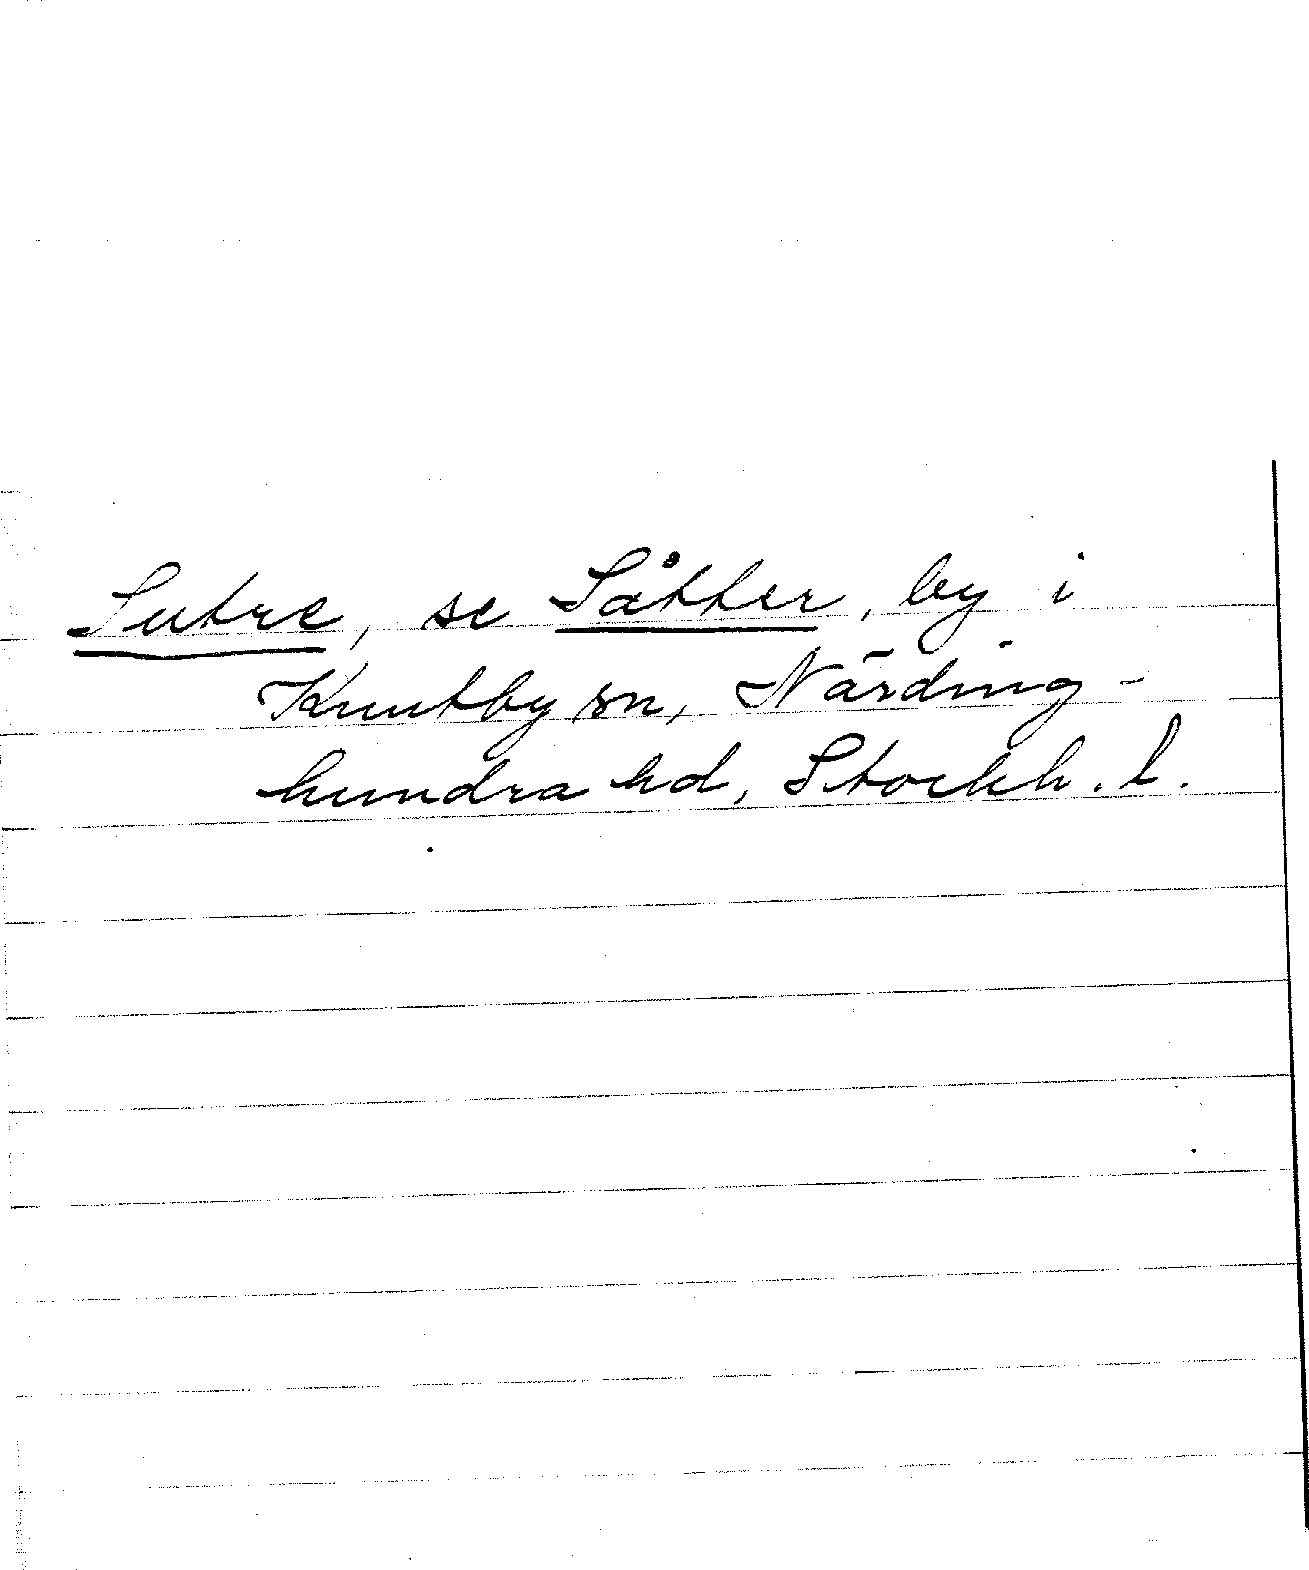 Sutre, se Såtter, by i
Knutby sn, Närding-
hundra hd, Stockh. l.